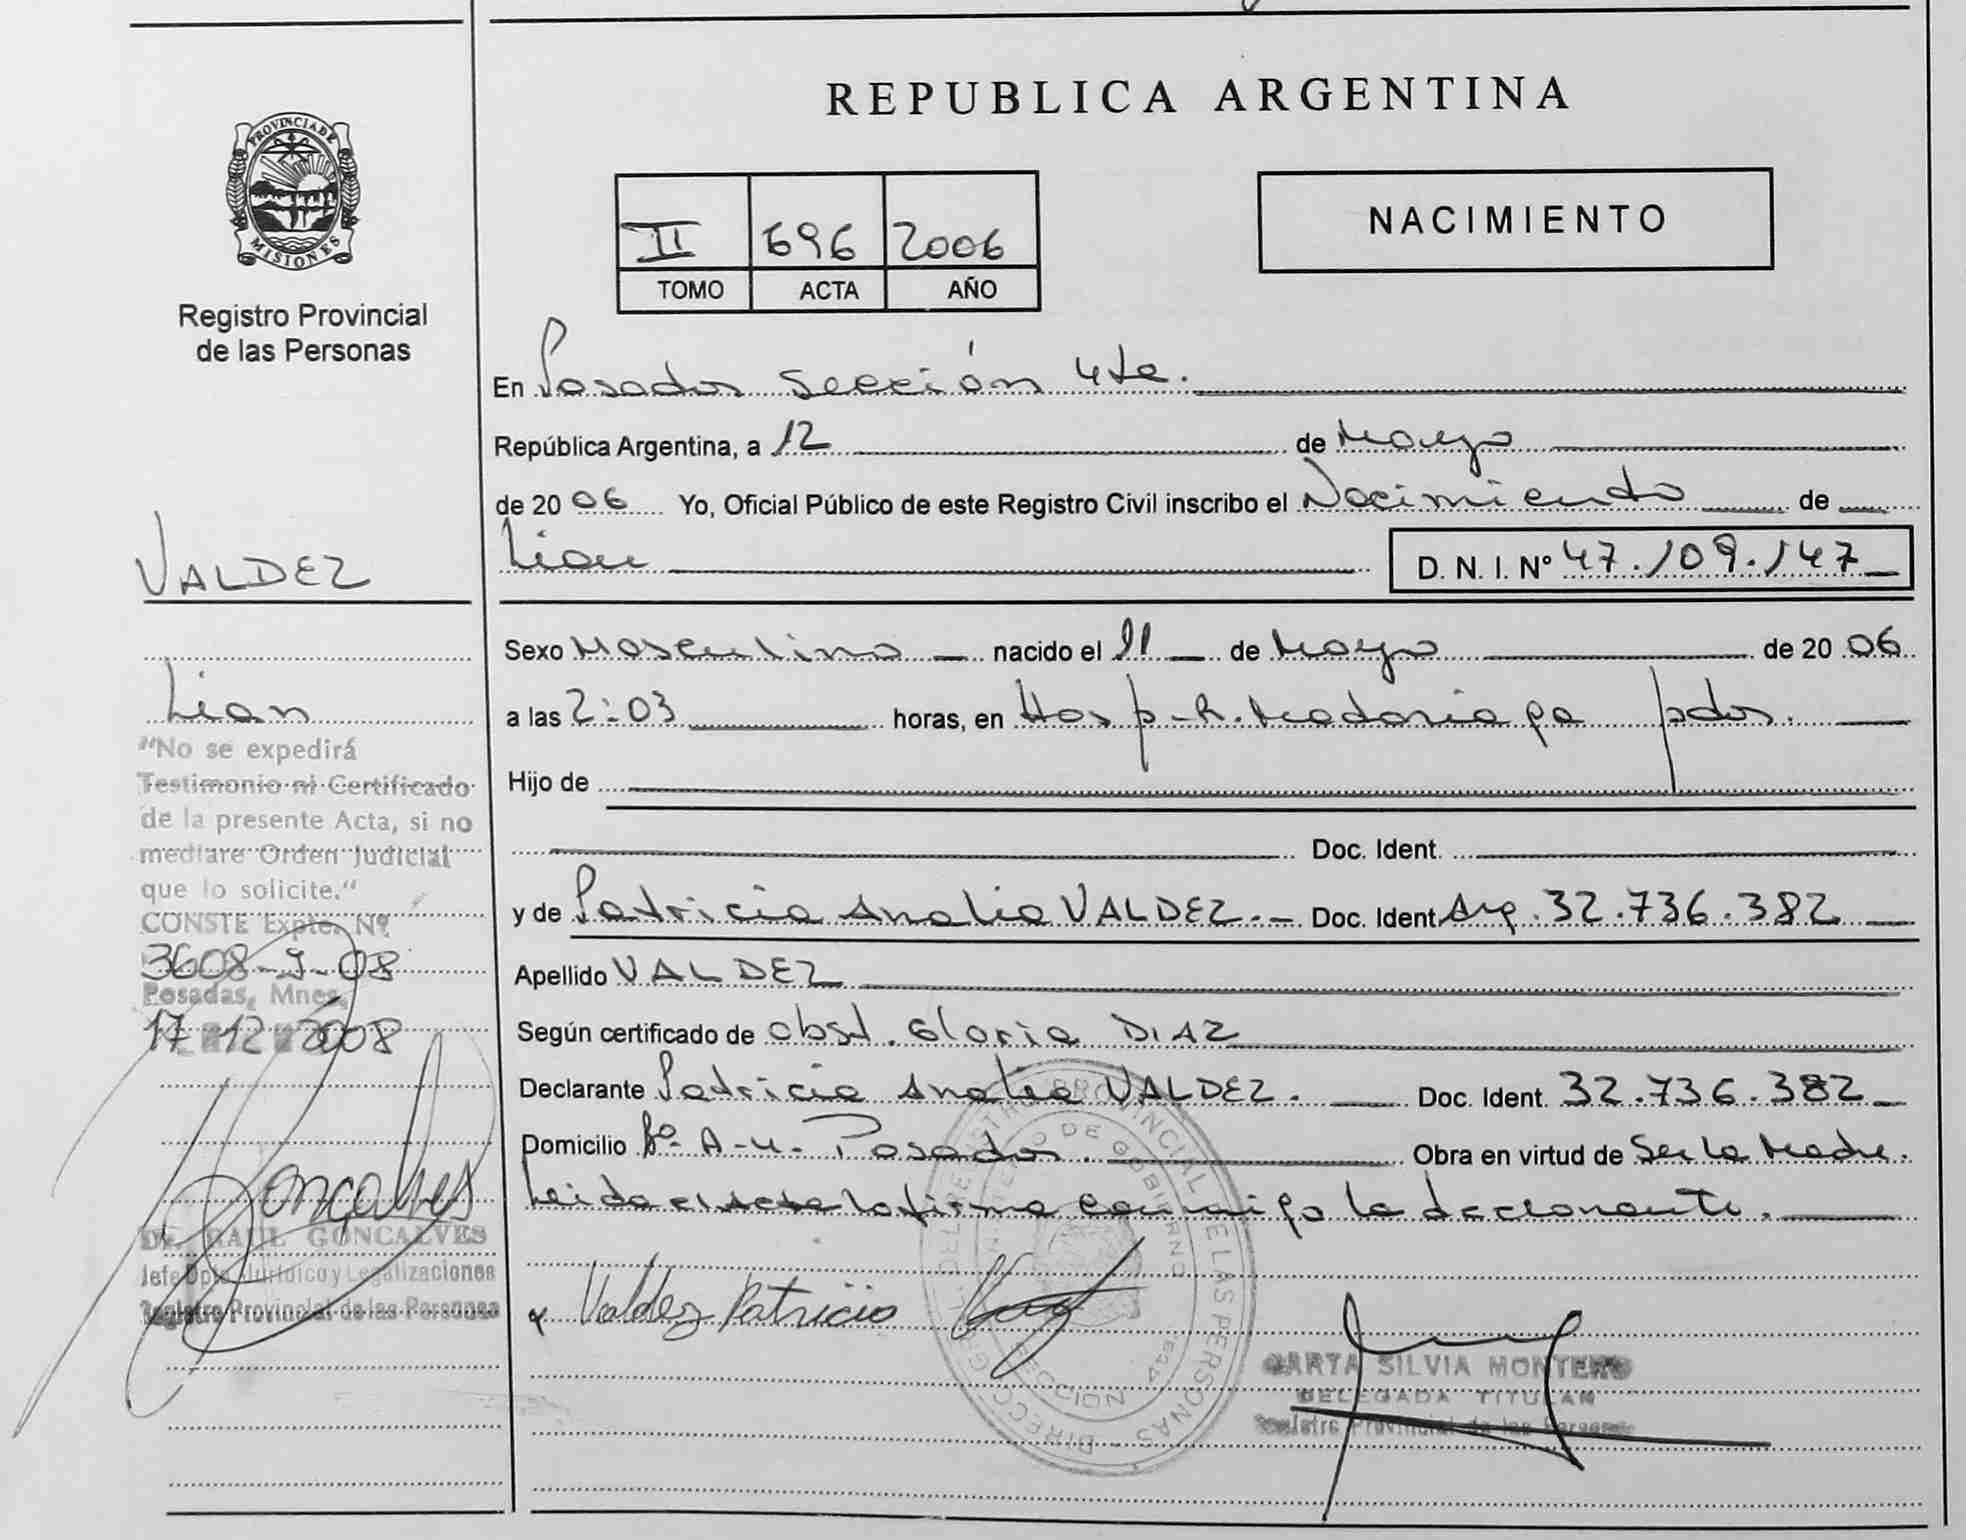 REPUBLICA ARGENTINA
PROVINCIA DE
MISIONES
Registro Provincial
de las Personas
II 696 2006
TOMO ACTA AÑO
NACIMIENTO
En Posadas sección 4ta.
República Argentina, a 12 de Mayo
de 20 06 Yo, Oficial Público de este Registro Civil inscribo el Nacimiento de
Lian D. N. I. Nº 47.109.147
VALDEZ
Lian
"No se expedirá
Testimonio ni Certificado
de la presente Acta, si no
mediare Orden Judicial
que lo solicite."
CONSTE Expte. Nº
3608-J-08
Posadas, Mnes,
17 12 2008
Goncalves
Dr. RAUL GONCALVES
Jefe Dpto. Jurídico y Legalizaciones
Registro Provincial de las Personas
Sexo Masculino nacido el 11 de Mayo de 20 06
a las 2:03 horas, en Hosp. R. Madariaga pdas.
Hijo de
Doc. Ident.
y de Patricia Analia VALDEZ.- Doc. Ident. Arg. 32.736.382
Apellido VALDEZ
Según certificado de obst. Gloria DIAZ
Declarante Patricia Analia VALDEZ. Doc. Ident. 32.736.382
Domicilio Bº A-4- Posadas. Obra en virtud de Ser la Madre.
Leida el acta la firma conmigo la declarante.
Valdez Patricia
DIRECC. GRAL. DEL REGISTRO PROVINCIAL DE LAS PERSONAS
MINISTERIO DE GOBIERNO
SECCION 4ta
SILVIA MONTERO
DELEGADA TITULAR
Registro Provincial de las Personas